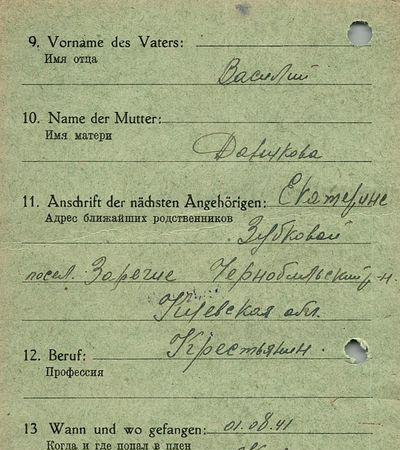 9. Vorname des Vaters:
Имя отца
Василий
10. Name der Mutter:
Имя матери
Давыдкова
11. Anschrift der nächsten Angehörigen: Екатерине
Адрес ближайших родственников
Зубковой
посел. Чернобильский р-н.
Киевская обл.
12. Beruf: Крестьянин.
Профессия
13 Wann und wo gefangen: 01.08.41
Когда и где попал в плен